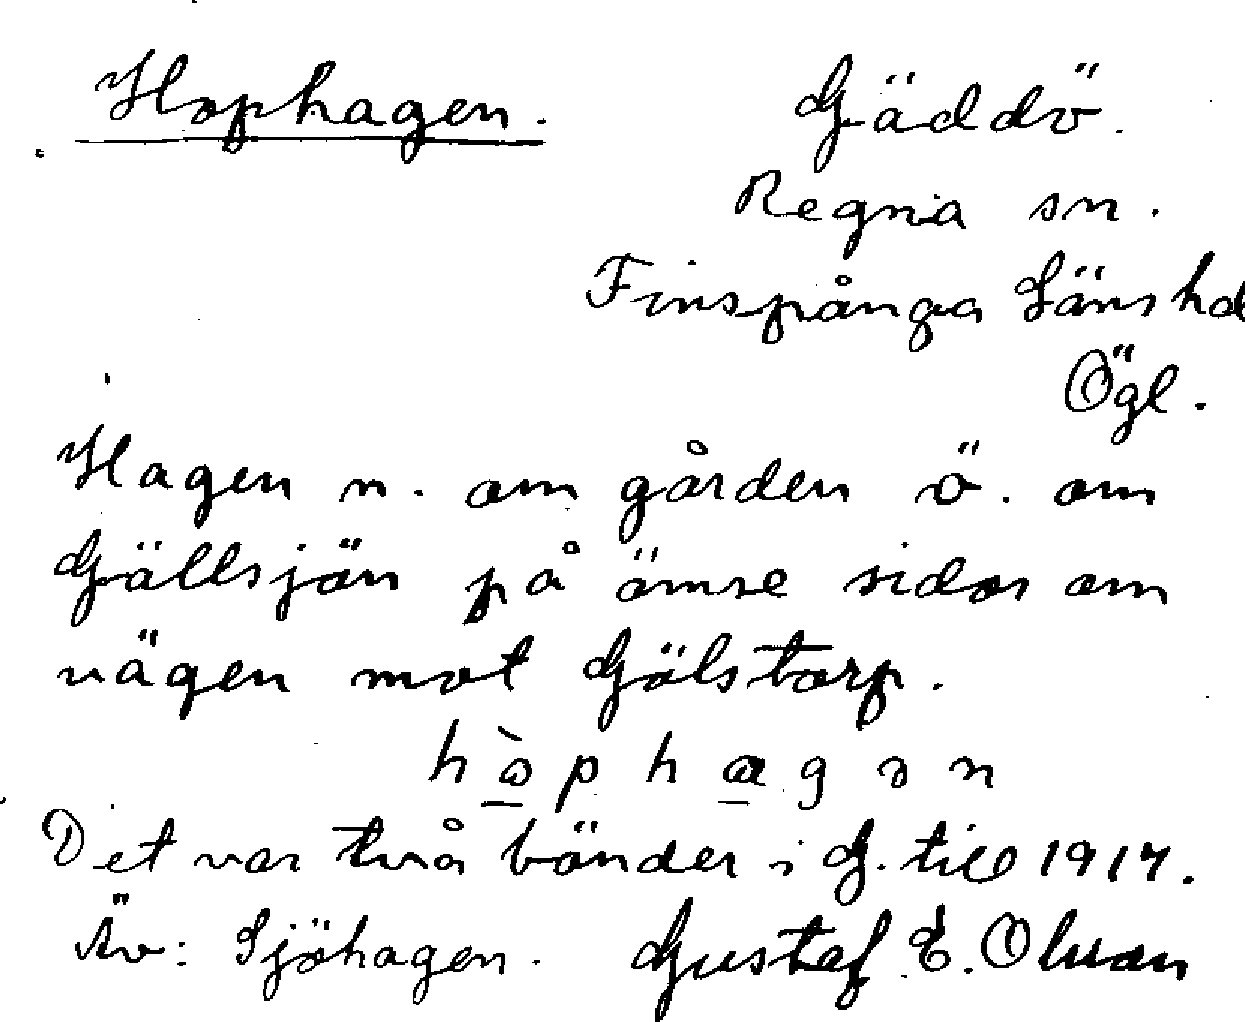 Hophagen. Gäddö.
Regna sn.
Finspånga Länshd
Ögl.
Hagen n. om gården ö. om
Gällsjön på ömse sidor om
vägen mot Gölstorp.
hòphagən
Det var två bönder i G. till 1917.
Äv: Sjöhagen. Gustaf E. Olsson